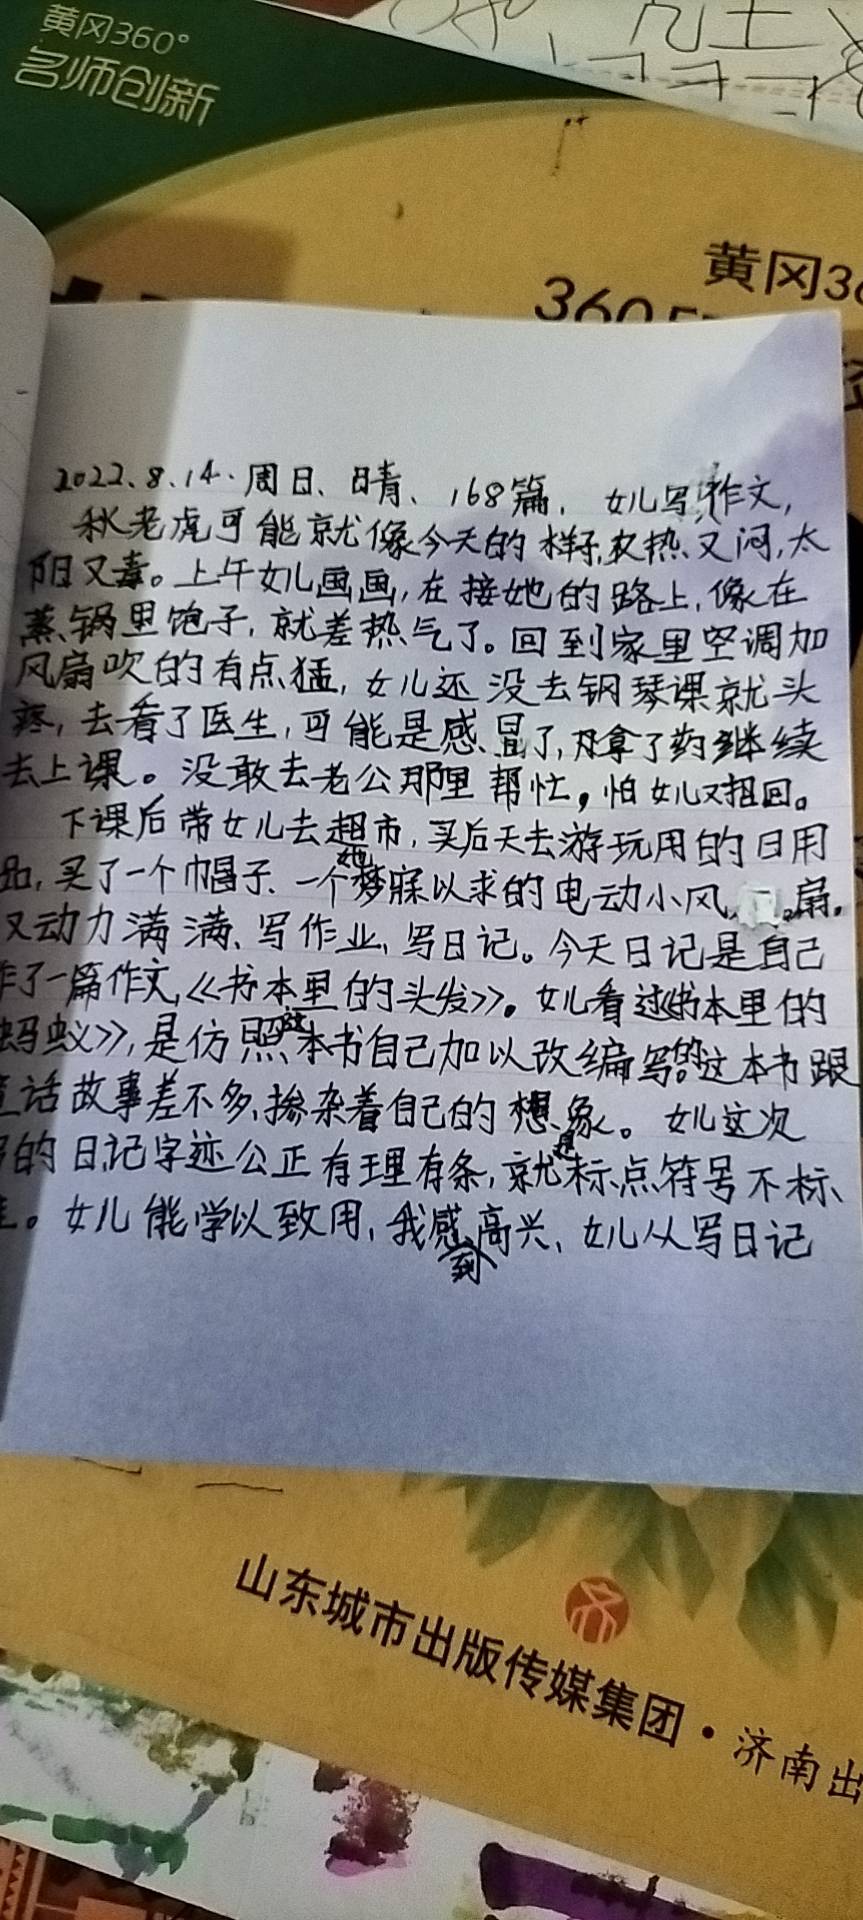 黄冈360°
名师创新
黄冈36
360
2022、8、14、周日、晴、168篇、女儿写作文,
秋老虎可能就像今天的样子,又热、又闷,太
阳又毒。上午女儿画画,在接她的路上,像在
蒸锅里饱子,就差热气了。回到家里空调加
风扇吹的有点猛,女儿还没去钢琴课就头
疼,去看了医生,可能是感冒了,拿了药继续
去上课。没敢去老公那里帮忙,怕女儿又担回。
下课后带女儿去超市,买后天去游玩用的日用
品,买了一个帽子、一个她梦寐以求的电动小风扇,
又动力满满、写作业、写日记。今天日记是自己
作了一篇作文,《书本里的头发》。女儿看过《书本里的
蚂蚁》,是仿照这本书自己加以改编写的。这本书跟
童话故事差不多、掺杂着自己的想象。女儿这次
的日记字迹公正有理有条,就是标点符号不标、
。女儿能学以致用,我感到高兴、女儿从写日记
山东城市出版传媒集团·济南出